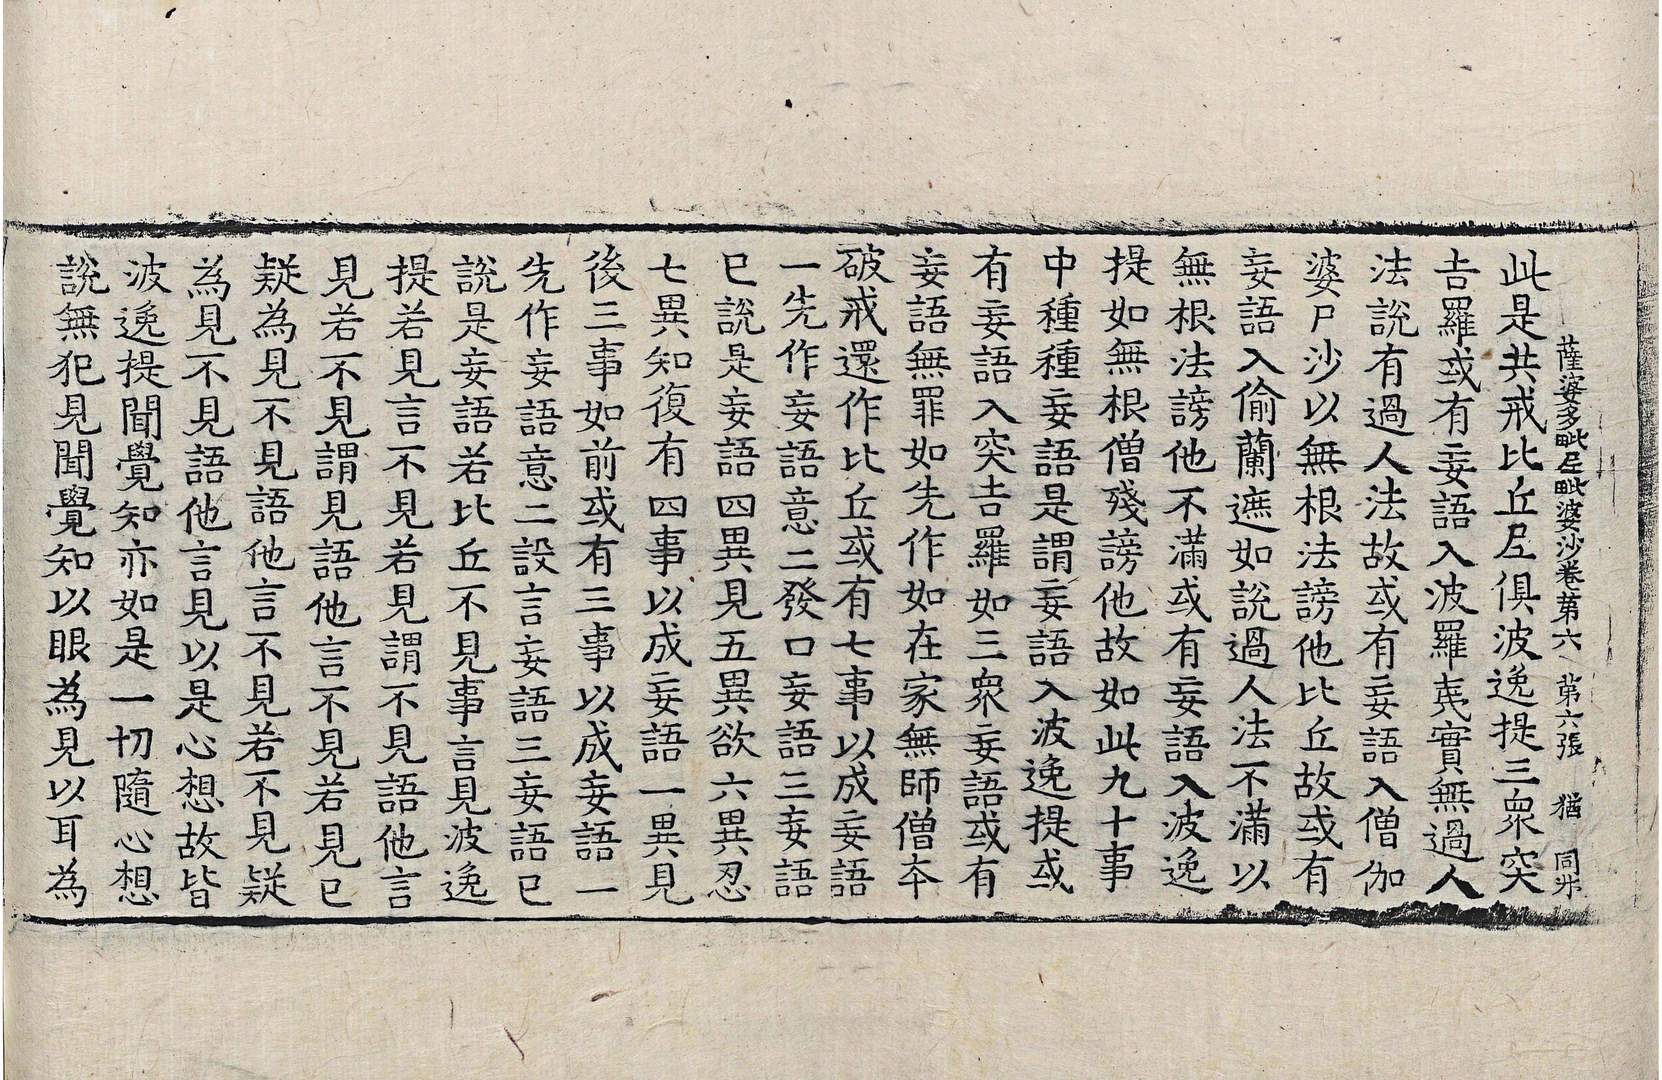 薩婆多毗尼毗婆沙卷第六 第六張 猶 同*
此是共戒比丘尼俱波逸提三衆突
吉羅或有妄語入波羅夷實無過人
法說有過人法故或有妄語入僧伽
婆尸沙以無根法謗他比丘故或有
妄語入偷蘭遮如說過人法不滿以
無根法謗他不滿或有妄語入波逸
提如無根僧殘謗他故如此九十事
中種種妄語是謂妄語入波逸提或
有妄語入突吉羅如三衆妄語或有
妄語無罪如先作如在家無師僧夲
破戒還作比丘或有七事以成妄語
一先作妄語意二發口妄語三妄語
已說是妄語四異見五異欲六異忍
七異知復有四事以成妄語一異見
後三事如前或有三事以成妄語一
先作妄語意二設言妄語三妄語已
說是妄語若比丘不見事言見波逸
提若見言不見若見謂不見語他言
見若不見謂見語他言不見若見已
疑為見不見語他言不見若不見疑
為見不見語他言見以是心想故皆
波逸提聞覺知亦如是一切隨心想
說無犯見聞覺知以眼為見以耳為